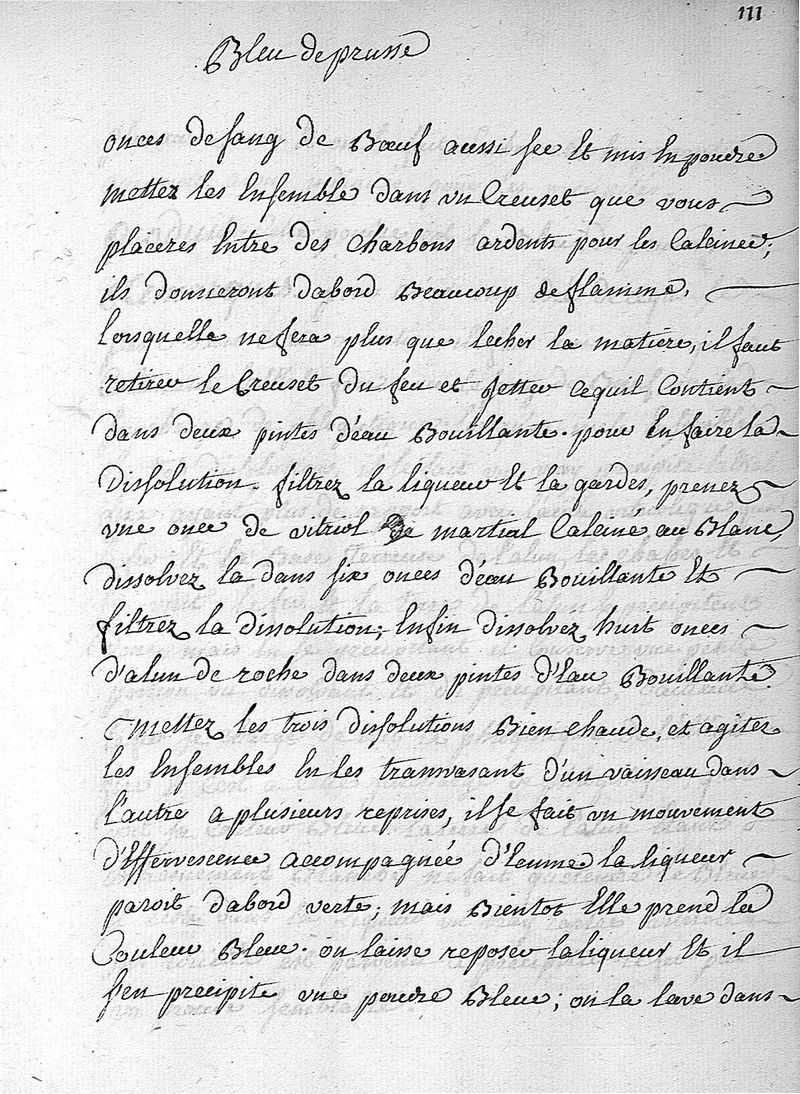 111
Bleu de prusse
onces de sang de Bœuf aussi sec Et mis En poudre
mettez les Ensemble dans vn Creuset que vous
placeres Entre des charbons ardents pour les Calciner;
ils donneront dabord Beaucoup de flamme,
lorsquelle ne sera plus que lecher la matiere, il faut
retirer le Creuset du feu et jetter cequil Contient
dans deux pintes d'eau Bouillante. pour En faire la
dissolution. filtrez la liqueur Et la gardes, prenez
vne once de vitriol de martial Calciné au Blanc,
dissolvez la dans six onces d'eau Bouillante Et
filtrez la dissolution; Enfin dissolvez huit onces
d'alun de roche dans deux pintes d'Eau Bouillante.
mettez les trois dissolutions Bien chaude, et agitez
les Ensembles En les tranvasant d'un vaisseau dans
l'autre a plusieurs reprises, il se fait vn mouvement
d'Effervescence accompagnée d'Ecume la liqueur
paroit dabord verte; mais Bientot Elle prend la
Couleur Bleue. on laisse reposer la liqueur Et il
s'en precipite vne poudre Bleue; on la lave dans